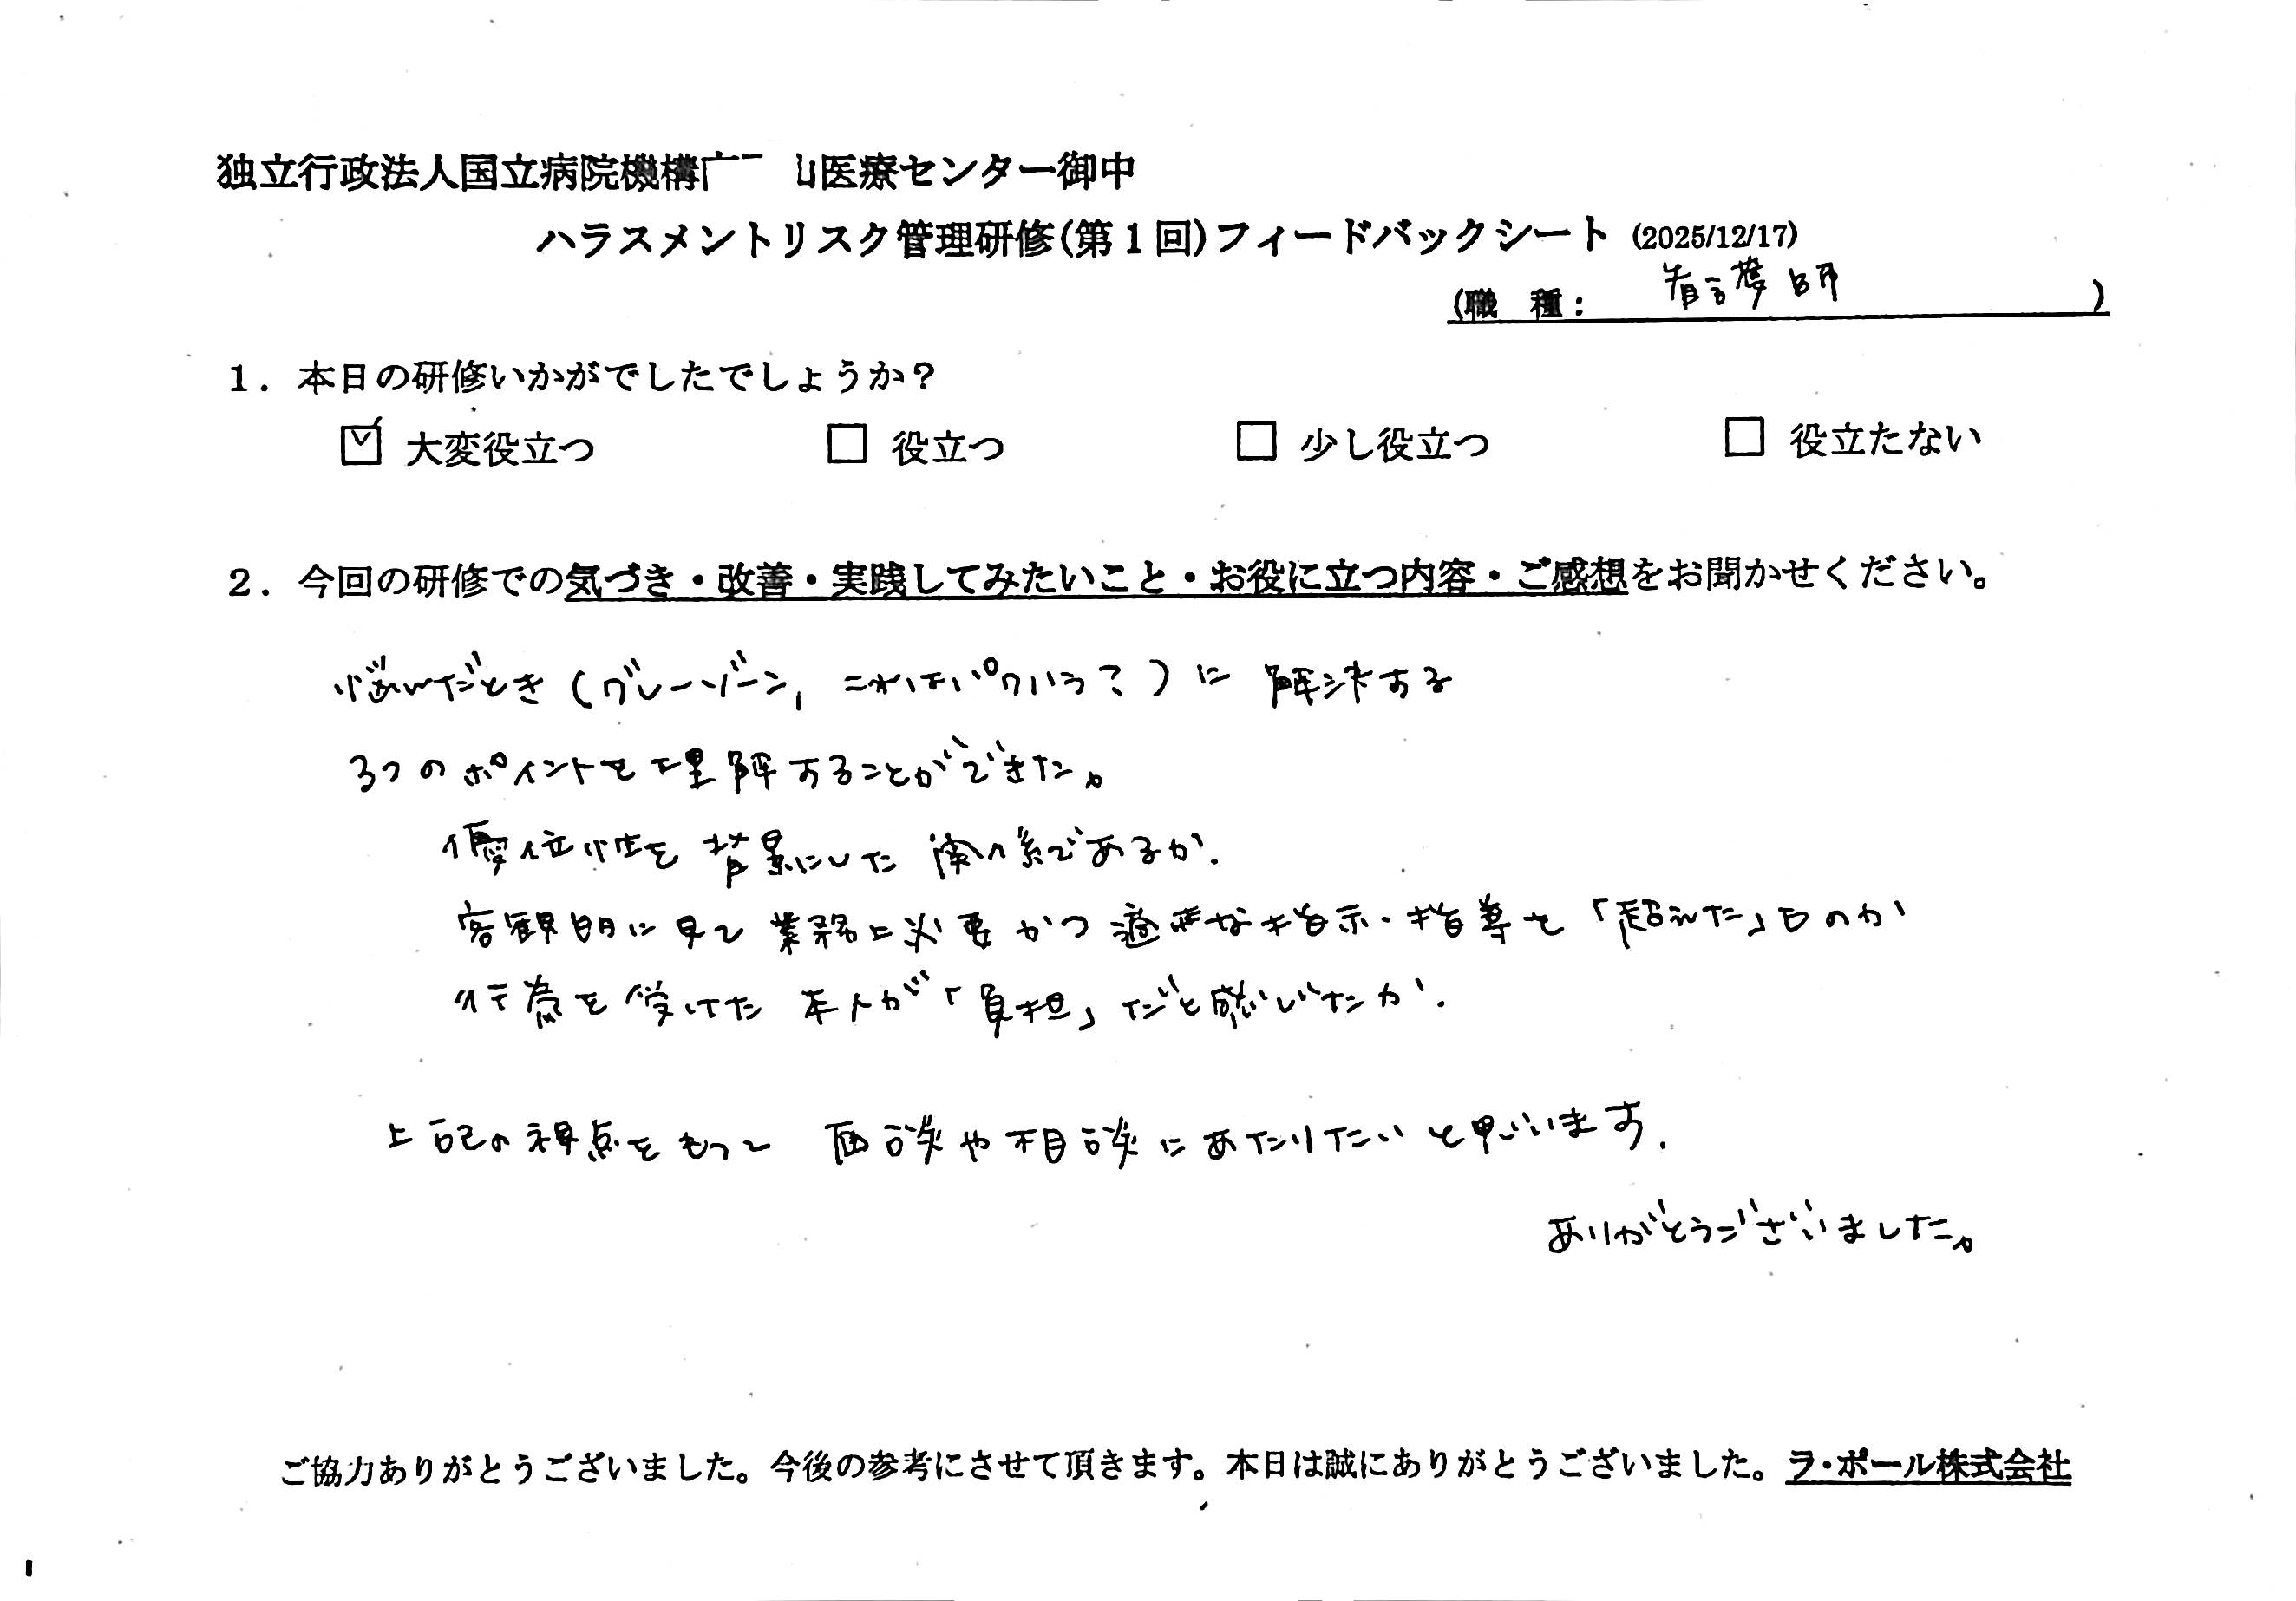 独立行政法人国立病院機構 医療センター御中
ハラスメントリスク管理研修(第1回)フィードバックシート (2025/12/17)
(職 種: 看護師 )
1. 本日の研修いかがでしたでしょうか?
☑ 大変役立つ □ 役立つ □ 少し役立つ □ 役立たない
2. 今回の研修での気づき・改善・実践してみたいこと・お役に立つ内容・ご感想をお聞かせください。
悩んだとき(グレーゾーン, これはパワハラ?)に 解決する
3つのポイントを理解することができた。
優位性を背景にした関係であるか.
客観的に見て業務上必要かつ適正な指示・指導を「超えた」ものか
行為を受けた本人が「負担」だと感じたか.
上記の視点をもって 面談や相談にあたりたいと思います.
ありがとうございました。
ご協力ありがとうございました。今後の参考にさせて頂きます。本日は誠にありがとうございました。ラ・ポール株式会社